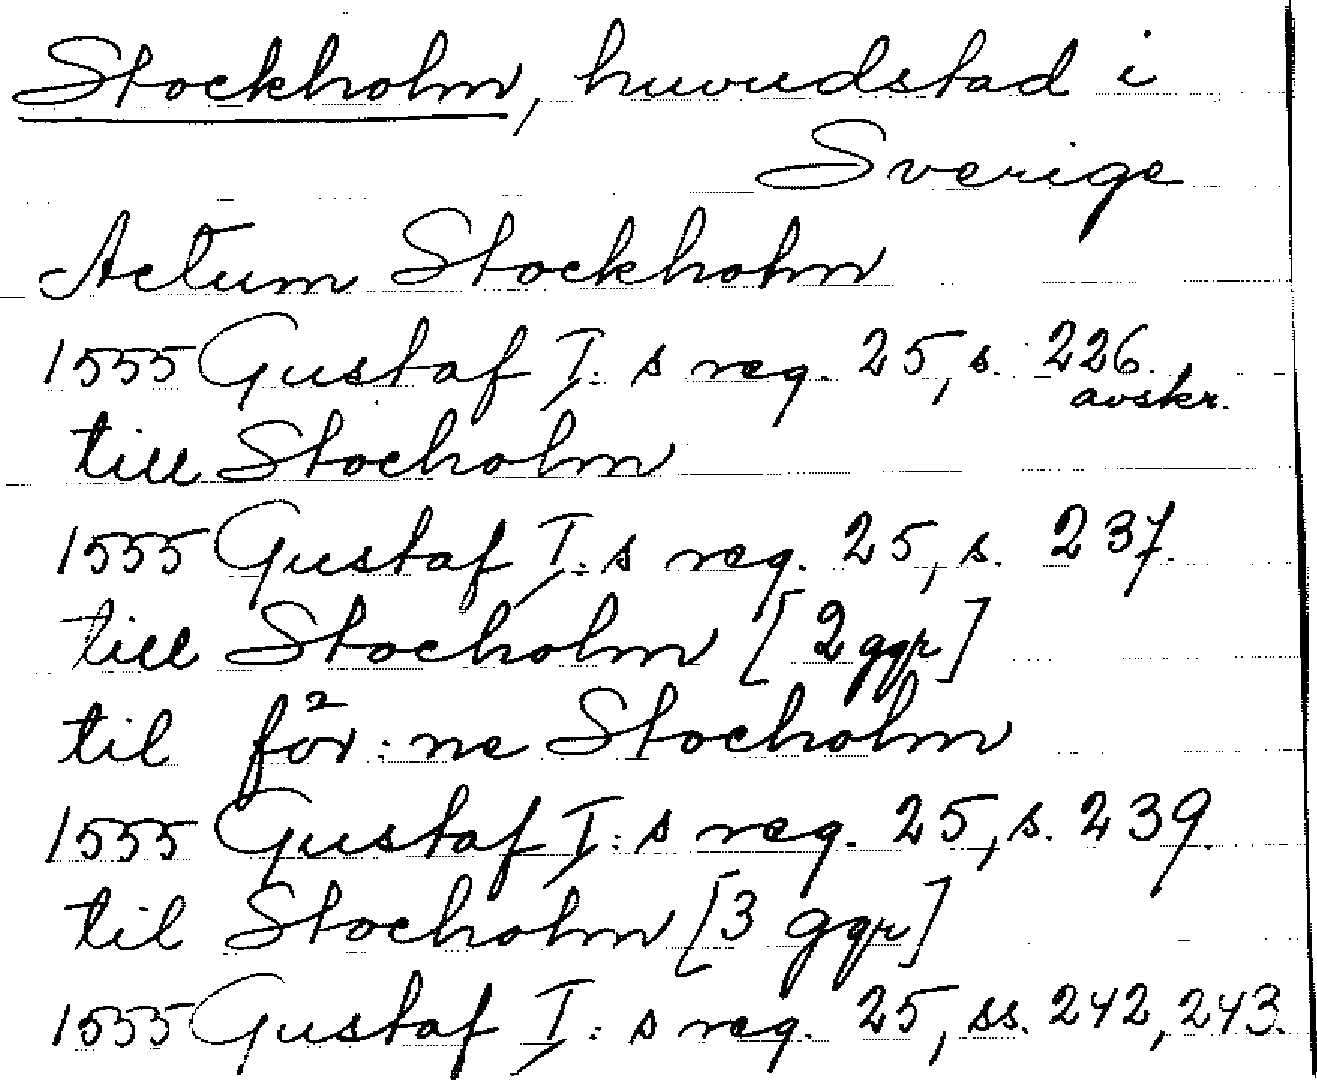 Stockholm, huvudstad i
Sverige
Actum Stockholm
1555 Gustaf I:s reg. 25, s. 226.
avskr.
till Stocholm
1555 Gustaf I:s reg. 25, s. 237.
till Stocholm [2 ggr]
til för:ne Stocholm
1555 Gustaf I:s reg. 25, s. 239.
til Stocholm [3 ggr]
1555 Gustaf I:s reg. 25, ss. 242, 243.